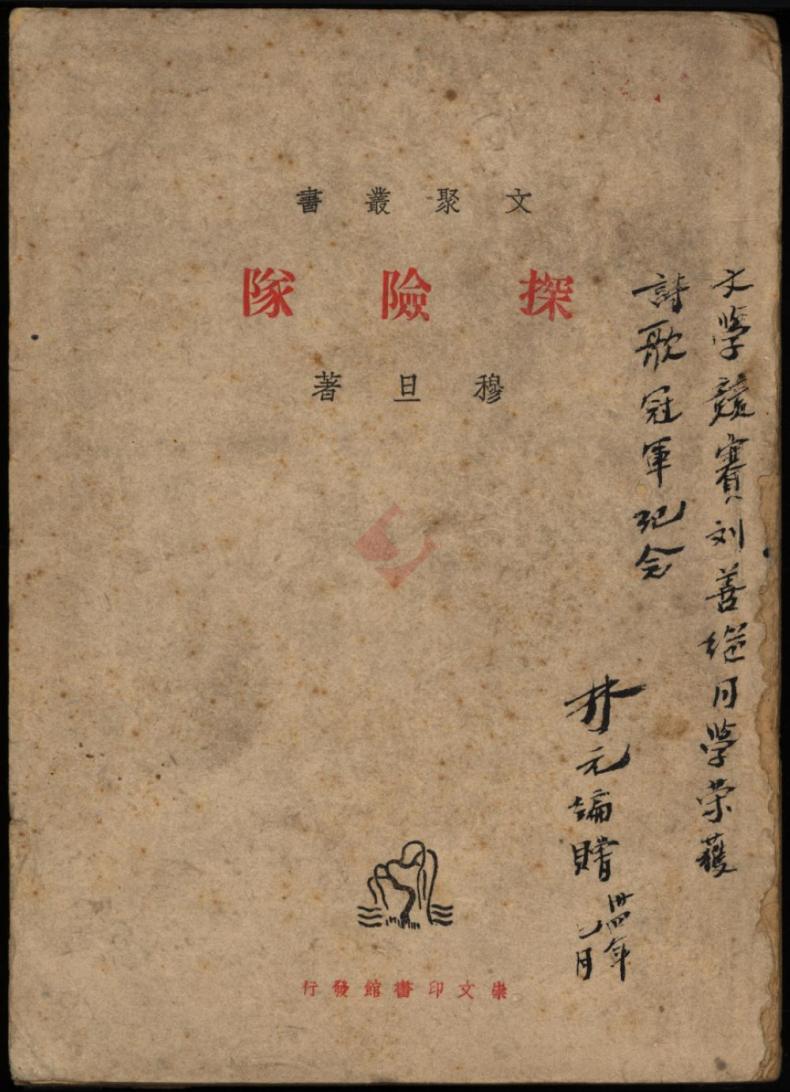 文聚叢書
探險隊
穆旦著
文學競賽刘善继同學荣獲
詩歌冠軍紀念
林元
卅四年
月
崇文印書館發行